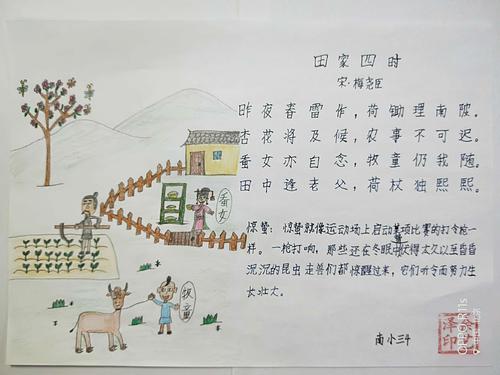 田家四时
宋·梅尧臣
昨夜春雷作，荷锄理南陂。
杏花将及候，农事不可迟。
蚕女亦自念，牧童仍我随。
田中逢老父，荷杖独熙熙。
惊蛰：惊蛰就像运动场上启动某项比赛的打令枪一
样。一枪打响，那些还在冬眠中被得太久以至昏昏
沉沉的昆虫走兽们都惊醒过来，它们听令而努力生
长壮大。
南小三4
蚕女
牧童